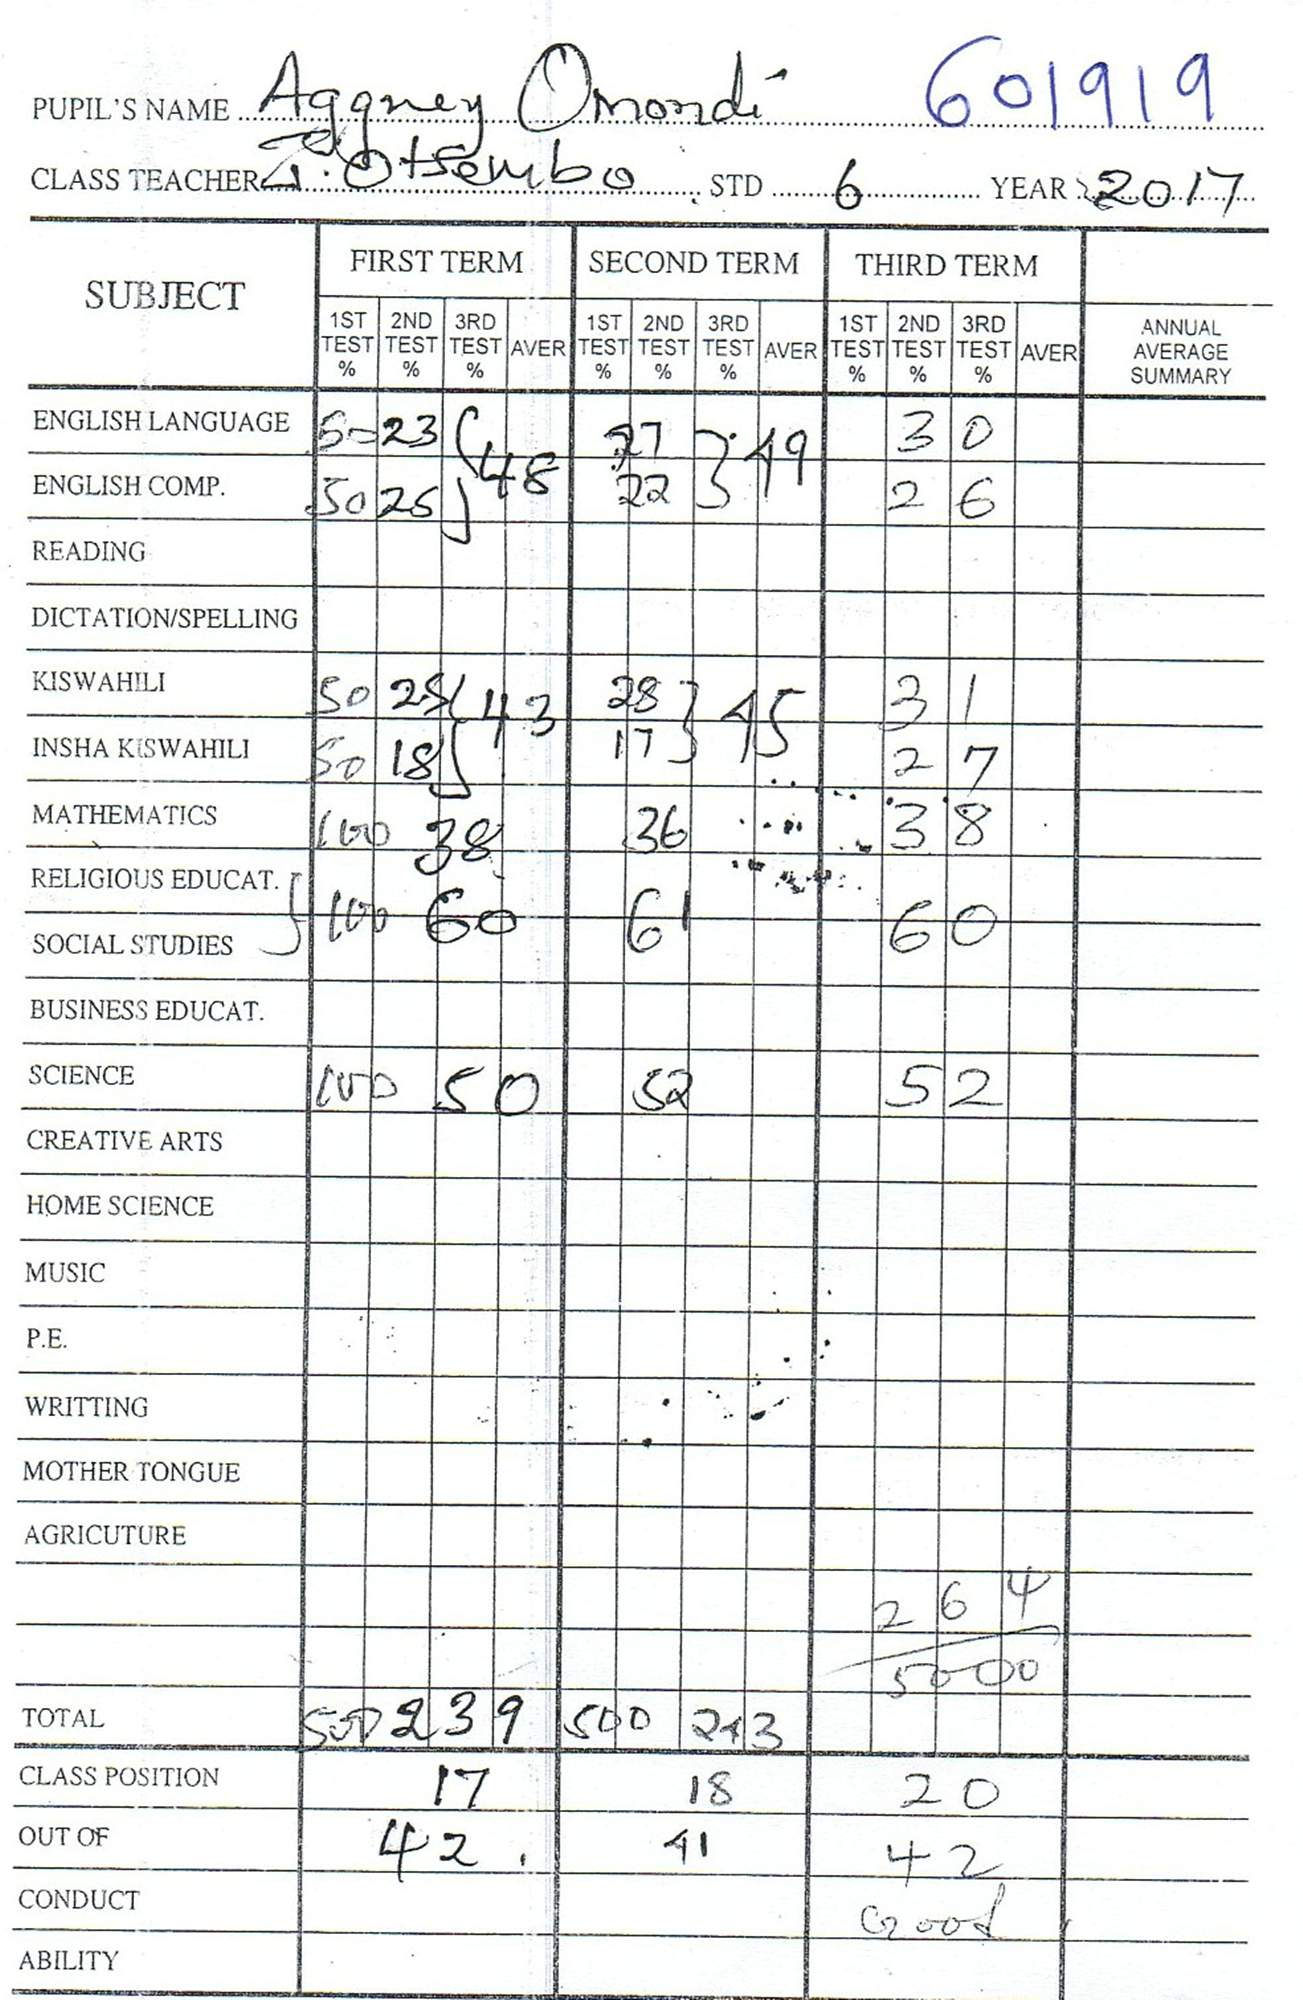 PUPIL'S NAME Aggney Omondi 601919
CLASS TEACHER J. Otsembo STD 6 YEAR 2017
SUBJECT FIRST TERM SECOND TERM THIRD TERM
1ST TEST % 2ND TEST % 3RD TEST % AVER 1ST TEST % 2ND TEST % 3RD TEST % AVER 1ST TEST % 2ND TEST % 3RD TEST % AVER ANNUAL AVERAGE SUMMARY
ENGLISH LANGUAGE 50 23 } 48 27 } 49 30
ENGLISH COMP. 50 25 22 26
READING
DICTATION/SPELLING
KISWAHILI 50 25 } 43 28 } 45 31
INSHA KISWAHILI 50 18 17 27
MATHEMATICS 100 38 36 38
RELIGIOUS EDUCAT. } 100 60 61 60
SOCIAL STUDIES
BUSINESS EDUCAT.
SCIENCE 100 50 52 52
CREATIVE ARTS
HOME SCIENCE
MUSIC
P.E.
WRITTING
MOTHER TONGUE
AGRICUTURE
264
500
TOTAL 500 239 500 243
CLASS POSITION 17 18 20
OUT OF 42 41 42
CONDUCT Good
ABILITY